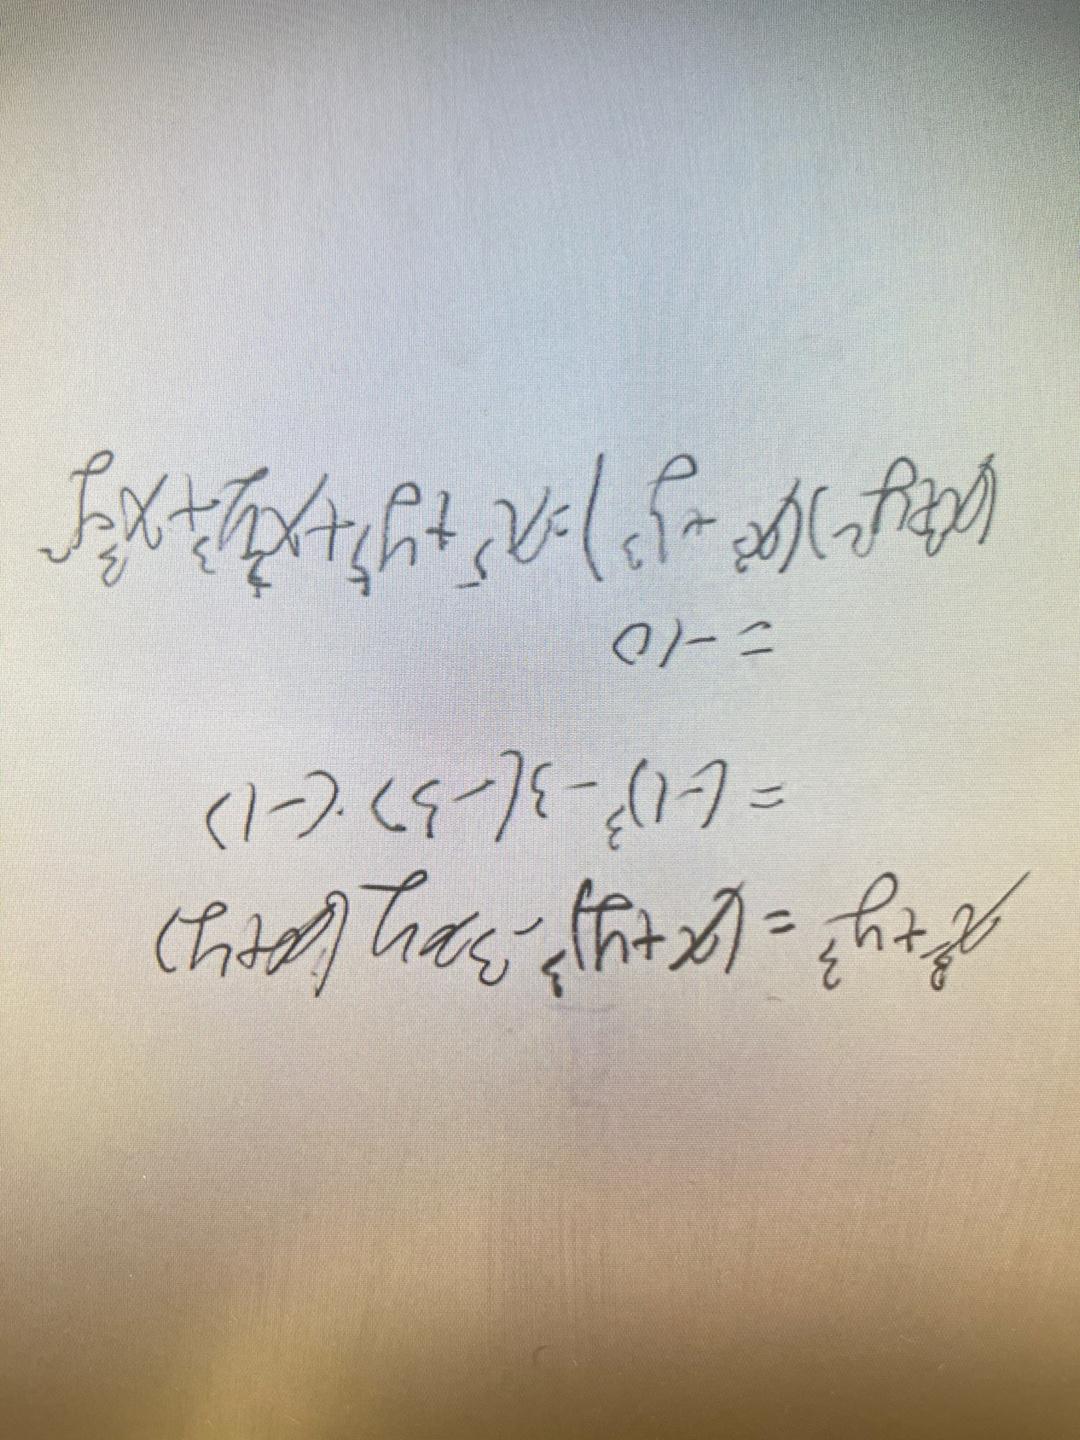 x³+y³=(x+y)³-3xy(x+y)
=(-1)³-3(-3)·(-1)
=-10
(x²+y²)(x³+y³)=x⁵+y⁵+x²y³+x³y²